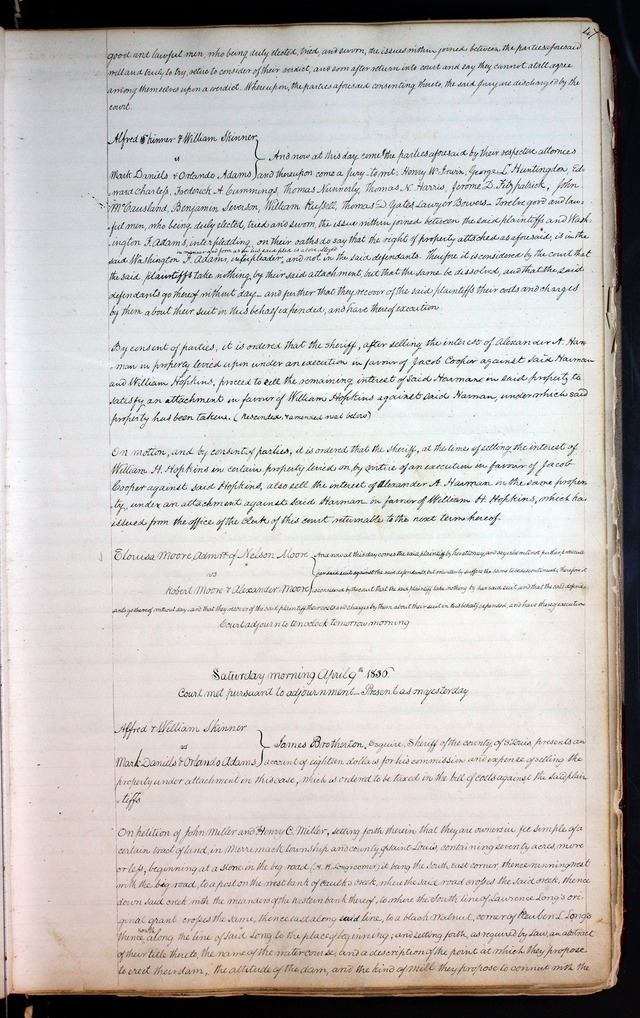 47
good and lawful men, who being duly elected, tried, and sworn, the issues within joined between the parties aforesaid
well and truly to try, retire to consider of their verdict, and soon after return into court and say they cannot at all agree
among themselves upon a verdict. Whereupon, the parties aforesaid consenting thereto, the said Jury are discharged by the
court.
Alfred Skinner & William Skinner
vs
Mark Daniels & Orlando Adams
And now at this day come the parties aforesaid by their respected attornies
and thereupon come a jury to wit: Henry W. Irwin, George L. Huntingdon, Ed-
ward Charless, Frederick A. Cummings, Thomas Nunnerly, Thomas N. Harris, Jerome D. Fitzpatrick, John
McCausland, Benjamin Severson, William Russell, Thomas D. Yates Lawyer Bowers Twelve good and law-
ful men, who being duly elected, tried and sworn, the issue within joined between the said plaintiffs and Wash-
ington F. Adams, interpleading, on their oaths do say that the right of property attached as aforesaid, is in the
in manner and form as the his said plea is above alleged
said Washington F. Adams, interpleader, and not in the said defendants. Therefore it is considered by the court that
the said plaintiffs take nothing by their said attachment, but that the same be dissolved, and that the said
defendants go thereof without day and further that they recover of the said plaintiffs their costs and charges
by them about their suit in this behalf expended, and have thereof execution
By consent of parties, it is ordered that the sheriff, after selling the interest of Alexander A. Har-
man in property levied upon under an execution in favour of Jacob Cooper against said Harman
and William Hopkins, proceed to sell the remaining interest of said Harman in said property to
satisfy an attachment in favour of William Hopkins against said Harman, under which said
property has been taken. (Rescinded & amended read below)
On motion, and by consent of parties, it is ordered that the sheriff, at the time of selling the interest of
William H. Hopkins in certain property levied on, by virtue of an execution in favour of Jacob
Cooper against said Hopkins, also sell the interest of Alexander A. Harman in the same proper-
ty, under an attachment against said Harman in favour of William H. Hopkins, which ha-
issued from the office of the Clerk of this court returnable to the next term hereof.
Elouisa Moore Admrx of Nelson Moore
vs
Robert Moore & Alexander Moore
And now at this day comes the said plaintiff by her attorney, and says she will not further prosecute
her said suit against the said defendants, but voluntarily suffers the same to be discontinued; therefore it
is considered by the court that the said plaintiff take nothing by her said suit, and that the said defend-
ants go thereof without day and that they recover of the said plaintiff their costs and charges by them about their suit in this behalf expended, and have thereof execution
Court adjourn to ten oclock tomorrow morning
Saturday morning April 9th 1836.
Court met pursuant to adjournment Present as on yesterday
Alfred & William Skinner
vs
Mark Daniels & Orlando Adams
James Brotherton, Esquire, Sheriff of the county of St Louis, presents an
account of eighteen dollars for his commission and expense of selling the
property under attachment in this case, which is ordered to be taxed in the bill of costs against the said plain-
tiffs
On petition of John Miller and Henry C. Miller, setting forth therein that they are owners in fee simple of a
certain tract of land, in Merrimack township and county of Saint Louis, containing seventy acres, more
or less, beginning at a stone in the big road (N. H. Long's corner) it being the South east corner, thence running west
with the big road, to a post on the west bank of creek, where the said road crosses the said creek, thence
down said creek with the meanders of the eastern bank thereof, to where the South line of Lawrence Long's ori-
ginal grant crosses the same, thence east along said line, to a black walnut, corner of Reuben L. Long's
south
thence along the line of said Long to the place of beginning, and setting forth, as required by law, an abstract
of their title thereto, the name of the water course, and a description of the point at which they propose
to erect their dam, the altitude of the dam, and the kind of mill they propose to connect with the